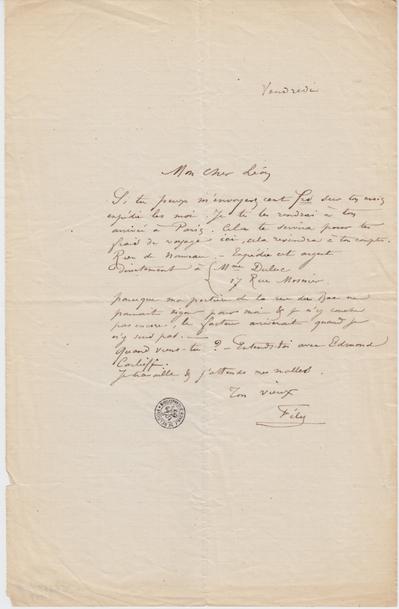 Vendredi
Mon cher Léon
Si tu peux m'envoyer cent frs sur ton mois
expédie les moi. Je te les rendrai à ton
arrivée à Paris. Cela te servira pour tes
frais de voyage ici, cela reviendra à ton compte.
Rien de nouveau. - Expédie cet argent
directement à Mme Duluc
17 Rue Mosnier
parceque ma portière de la rue du Bac ne
pouvait signer pour moi & je n'y couche
pas encore, le facteur arriverait quand je
n'y suis pas. -
Quand viens-tu ? - Entends-toi avec Edmond
Je travaille & j'attends mes malles.
Ton vieux
Fély